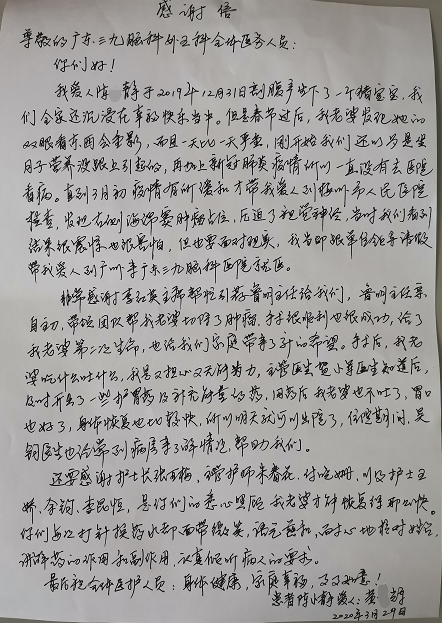 感谢信
尊敬的广东三九脑科外五科全体医务人员：
你们好！
我爱人陈静于2019年12月31日剖腹产生下了一个猪宝宝，我
们全家还沉浸在幸福快乐当中。但是春节过后，我老婆发现她的
双眼看东西会重影，而且一天比一天严重，刚开始我们还以为是坐
月子营养没跟上引起的，再加上新冠肺炎疫情所以一直没有去医院
看病。直到3月初疫情有所缓和才带我爱人到市人民医院
检查，发现左侧海绵窦肿瘤占位，压迫了视觉神经，当时我们看到
结果很震惊也很害怕，但也要面对现实，我当即跟单位领导请假
带我爱人到广州广东三九脑科医院就医。
非常感谢李主席帮忙引荐鲁明主任给我们，鲁明主任亲
自动，带领团队帮我老婆切除了肿瘤，手术很顺利也很成功，给了
我老婆第二次生命，也给我们家庭带来了新的希望。手术后，我老
婆吃什么吐什么，我是又担心又无能为力，主管医生医生知道后，
及时开出了一些护胃药及补充能量的药，用药后我老婆也不吐了，胃口
也好了，身体恢复也比较快，所以明天就可以出院了，住院期间，吴
医生也给常到病房来了解情况，帮助我们。
还要感谢护士长张，护师来春花、付，以及护士王
娇、余、李，是你们的悉心照顾我老婆才能恢复得那么快。
你们每次打针换药水都面带微笑，语气温和，而耐心地核对姓名，
讲解药的作用和副作用，认真倾听病人的要求。
最后祝全体医护人员：身体健康，家庭幸福，万事如意！
患者陈静爱人：黄
2020年3月29日